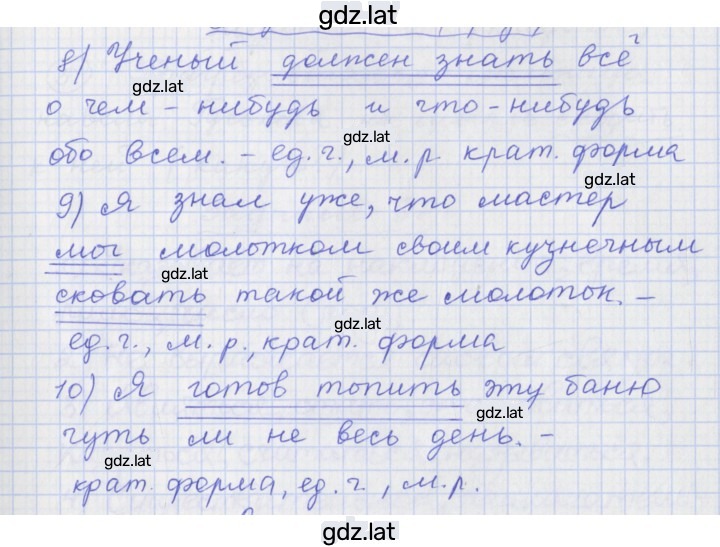 gdz.lat
8) Ученый должен знать всё
gdz.lat
о чем-нибудь и что-нибудь
gdz.lat
обо всем. - ед.ч., м.р крат. форма
gdz.lat
9) Я знал уже, что мастер
мог молотком своим кузнечным
gdz.lat
сковать такой же молоток. -
gdz.lat
ед.ч., м.р., крат. форма
gdz.lat
10) Я готов топить эту баню
gdz.lat
чуть ли не весь день. -
gdz.lat
крат. форма, ед.ч, м.р.
gdz.lat